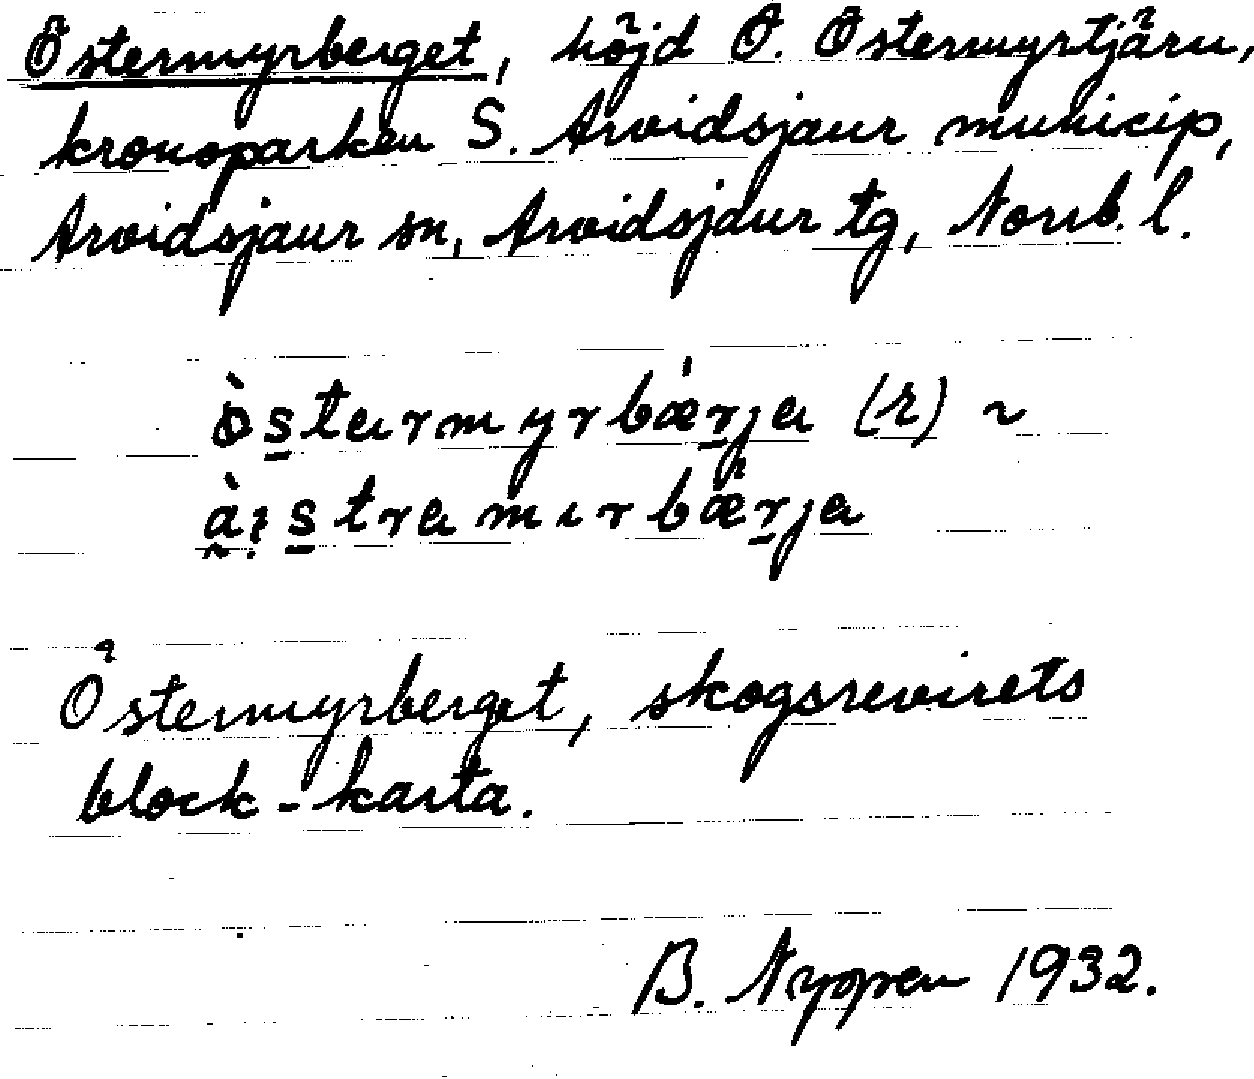 Östermyrberget, höjd Ö. Östermyrtjärn,
kronoparken S. Arvidsjaur municip,
Arvidsjaur sn, Arvidsjaur tg, Norrb. l.
òs̱tarmyrbǽṟja (r) ~
às̱tramırbæṟja
Östermyrberget, skogsrevirets
block-karta.
B. Nyppen 1932.